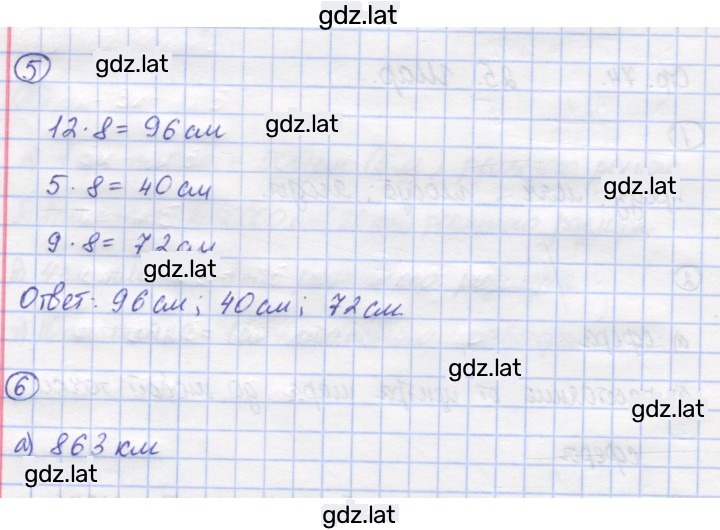 gdz.lat
5 gdz.lat
12·8= 96 см gdz.lat
5·8= 40 см gdz.lat
9·8= 72 см
gdz.lat
Ответ: 96 см; 40 см; 72 см.
gdz.lat
6
gdz.lat
а) 863 км
gdz.lat
gdz.lat